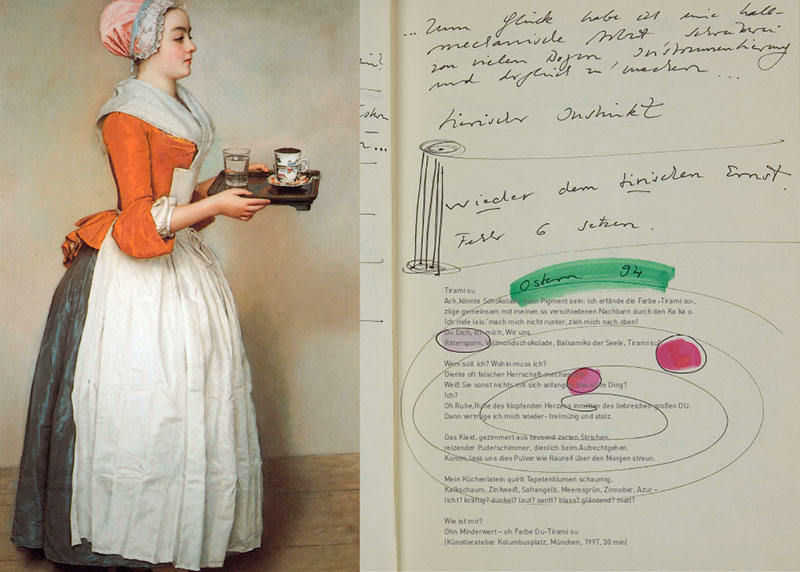 ... Zum Glück habe ich eine halb-
mechanische Arbeit
von vielen Instrumentierung
und dergleich zu machen ...
tierischer Instinkt
wieder dem tirischen Ernst.
6 setzen.
Ostern 94
Tirami su
Ach, könnte Schokolade ein Pigment sein: ich erfände die Farbe ›Tirami su‹,
zöge gemeinsam mit meinen so verschiedenen Nachbarn durch den Ka ka o.
Ich riefe leis: 'mach mich nicht runter, zieh mich nach oben!
Du Dich, ich mich, Wir uns.
Rittersporn, Vollmondschokolade, Balsamiko der Seele, Tirami su!
Wem soll ich? Wohin muss ich?
Diente oft falscher Herrschaft
Weiß Sie sonst nichts mit sich Ding?
Ich?
Oh Ruhe, Ruhe des klopfenden Herzens inmitten des liebreichen großen DU.
Dann vertrüge ich mich wieder- freimütig und stolz.
Das Kleid, gezimmert aus tausend zarten Strichen,
reizender Puderschimmer, dienlich beim Aufrechtgehen.
Komm, lass uns dies Pulver wie Raureif über den Morgen streun.
Mein Küchenlatein quirlt Tapetenblumen schaumig,
Kalkschaum, Zinkweiß, Safrangelb, Meeresgrün, Zinnober, Azur –
licht? kräftig? dunkel? laut? sanft? blass? glänzend? matt?
Wie ist mir?
Ohn Minderwert – oh Farbe Du-Tirami su
(Künstleratelier Kolumbusplatz, München, 1997, 30 min)